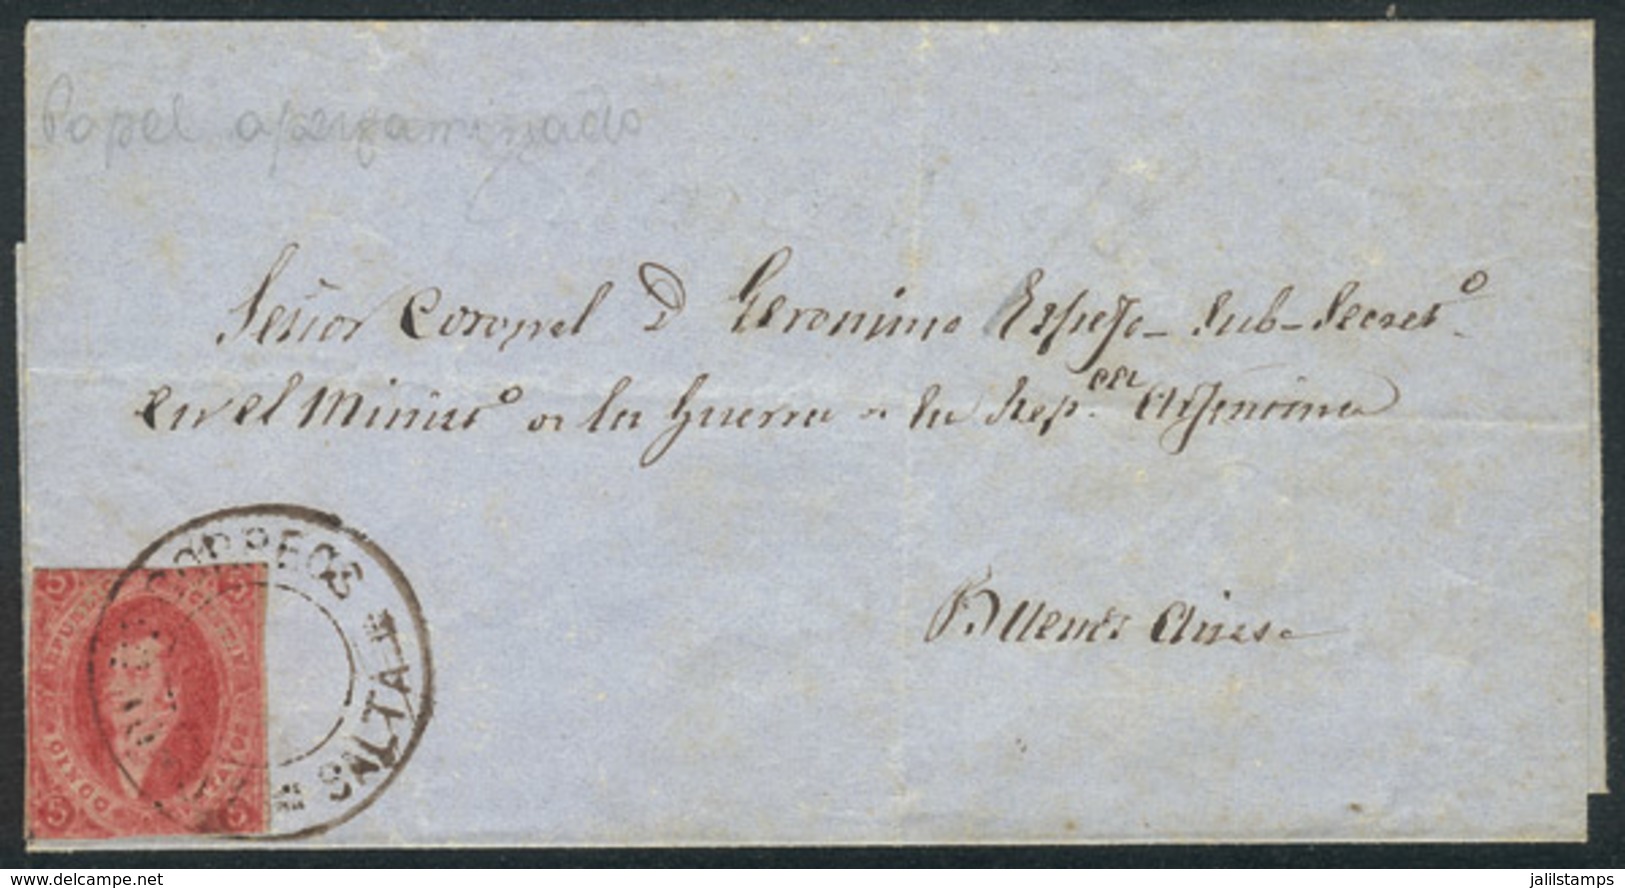 Papel apergaminado
Señor Coronel D Geronimo Espejo - Sub-Secretº
en el Ministº de la Guerra de la Repca Argentina
Buenos Aires
CORREOS
SALTA
5 5
5 5
delcampe.net
jalilstamps